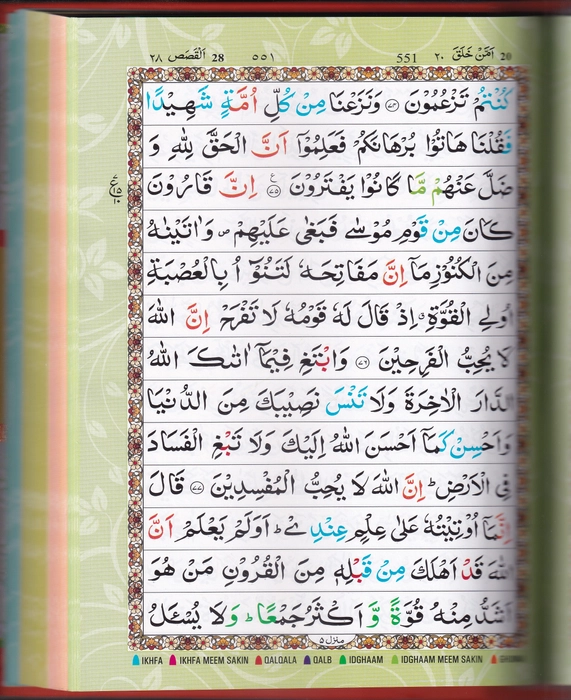 20 اَمَّنْ خَلَقَ ٢٠ 551 ٥٥١ 28 اَلْقَصَص ٢٨
كُنْتُمْ تَزْعُمُوْنَ ﴿٧٤﴾ وَنَزَعْنَا مِنْ كُلِّ اُمَّةٍ شَهِيْدًا
فَقُلْنَا هَاتُوْا بُرْهَانَكُمْ فَعَلِمُوْٓا اَنَّ الْحَقَّ لِلّٰهِ وَ
ضَلَّ عَنْهُمْ مَّا كَانُوْا يَفْتَرُوْنَ ﴿٧٥﴾ اِنَّ قَارُوْنَ
كَانَ مِنْ قَوْمِ مُوْسٰى فَبَغٰى عَلَيْهِمْ ۖ وَاٰتَيْنٰهُ
مِنَ الْكُنُوْزِ مَآ اِنَّ مَفَاتِحَهٗ لَتَنُوْٓاُ بِالْعُصْبَةِ
اُولِى الْقُوَّةِ ۗ اِذْ قَالَ لَهٗ قَوْمُهٗ لَا تَفْرَحْ اِنَّ اللّٰهَ
لَا يُحِبُّ الْفَرِحِيْنَ ﴿٧٦﴾ وَابْتَغِ فِيْمَآ اٰتٰىكَ اللّٰهُ
الدَّارَ الْاٰخِرَةَ وَلَا تَنْسَ نَصِيْبَكَ مِنَ الدُّنْيَا
وَاَحْسِنْ كَمَآ اَحْسَنَ اللّٰهُ اِلَيْكَ وَلَا تَبْغِ الْفَسَادَ
فِى الْاَرْضِ ؕ اِنَّ اللّٰهَ لَا يُحِبُّ الْمُفْسِدِيْنَ ﴿٧٧﴾ قَالَ
اِنَّمَآ اُوْتِيْتُهٗ عَلٰى عِلْمٍ عِنْدِىْ ؕ اَوَلَمْ يَعْلَمْ اَنَّ
اللّٰهَ قَدْ اَهْلَكَ مِنْ قَبْلِهٖ مِنَ الْقُرُوْنِ مَنْ هُوَ
اَشَدُّ مِنْهُ قُوَّةً وَّ اَكْثَرُ جَمْعًا ؕ وَلَا يُسْـَٔلُ
منزل ٥
IKHFA IKHFA MEEM SAKIN QALQALA QALB IDGHAAM IDGHAAM MEEM SAKIN